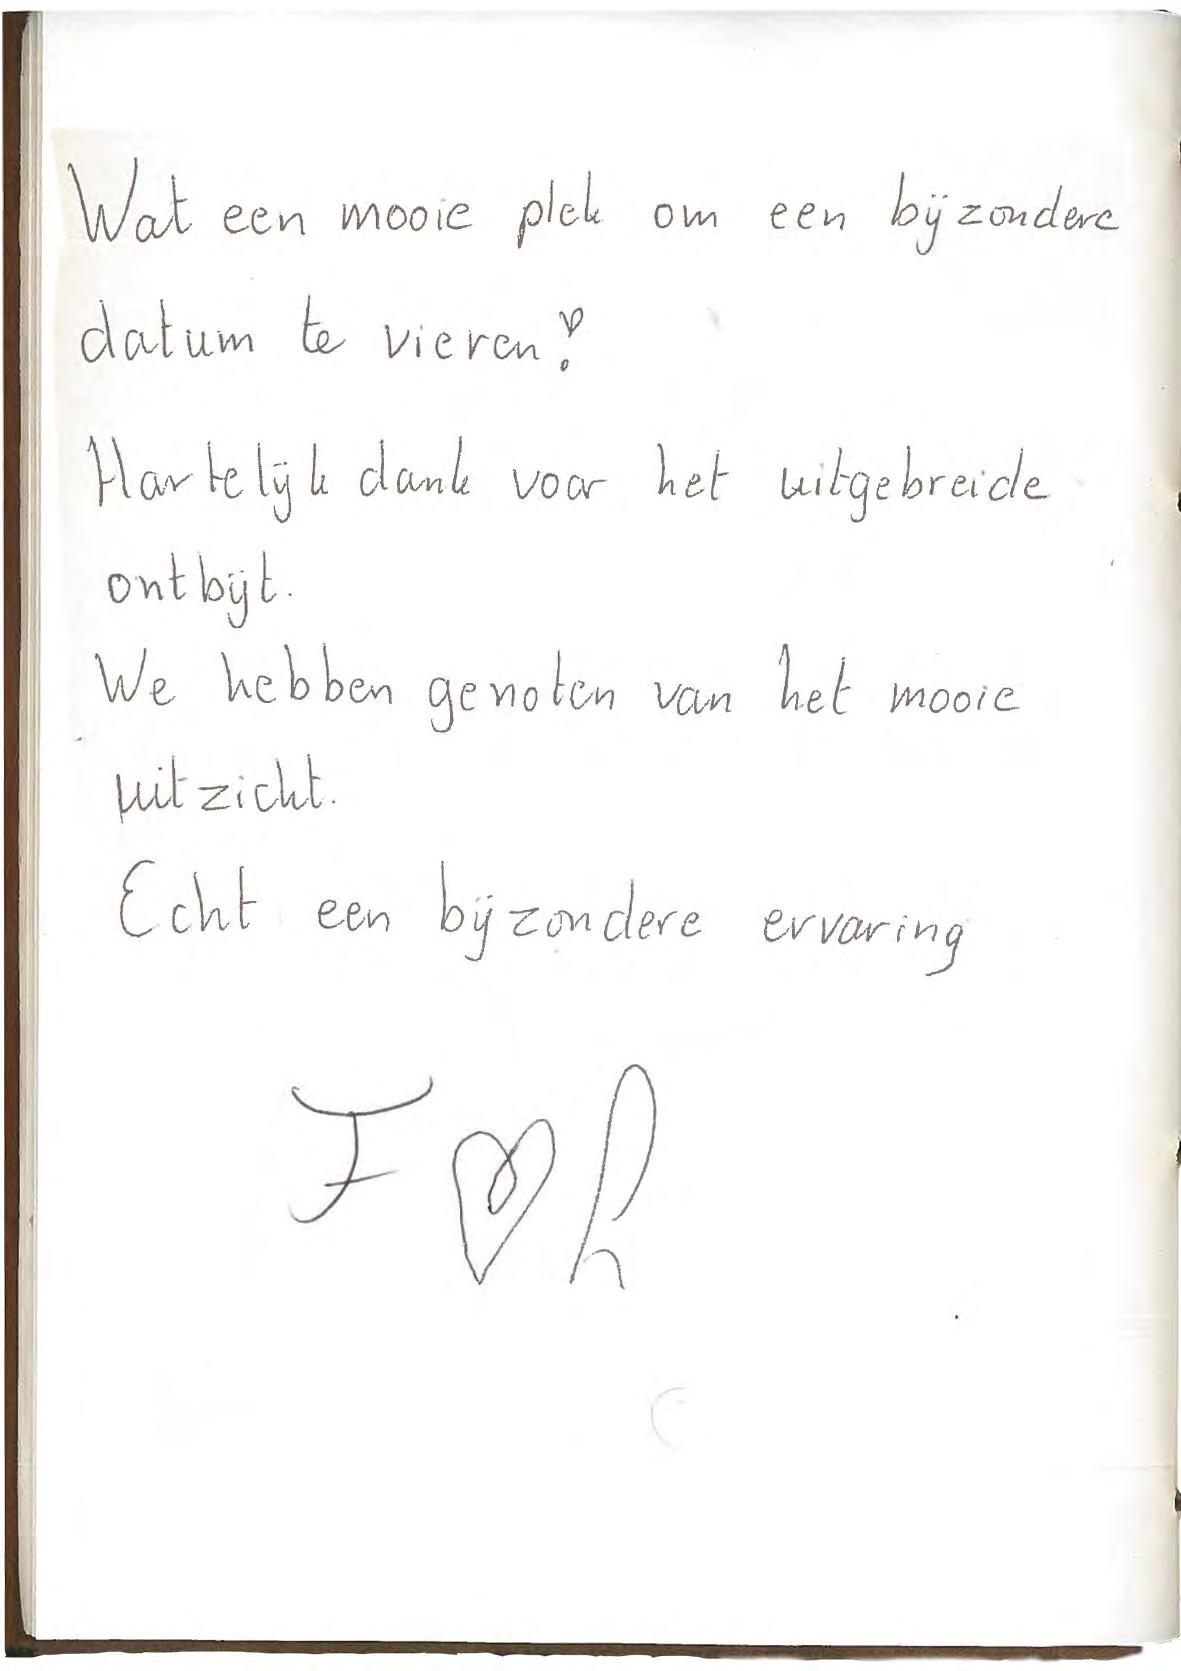 Wat een mooie plek om een bijzondere
datum te vieren!
Hartelijk dank voor het uitgebreide
ontbijt.
We hebben genoten van het mooie
uitzicht.
Echt een bijzondere ervaring
F ♡ h